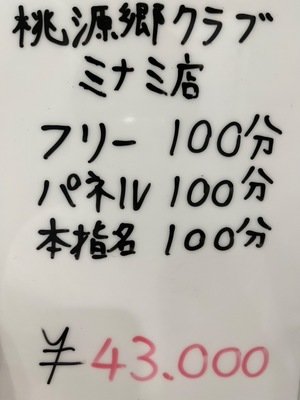 桃源郷クラブ
ミナミ店
フリー 100分
パネル 100分
本指名 100分
¥43.000